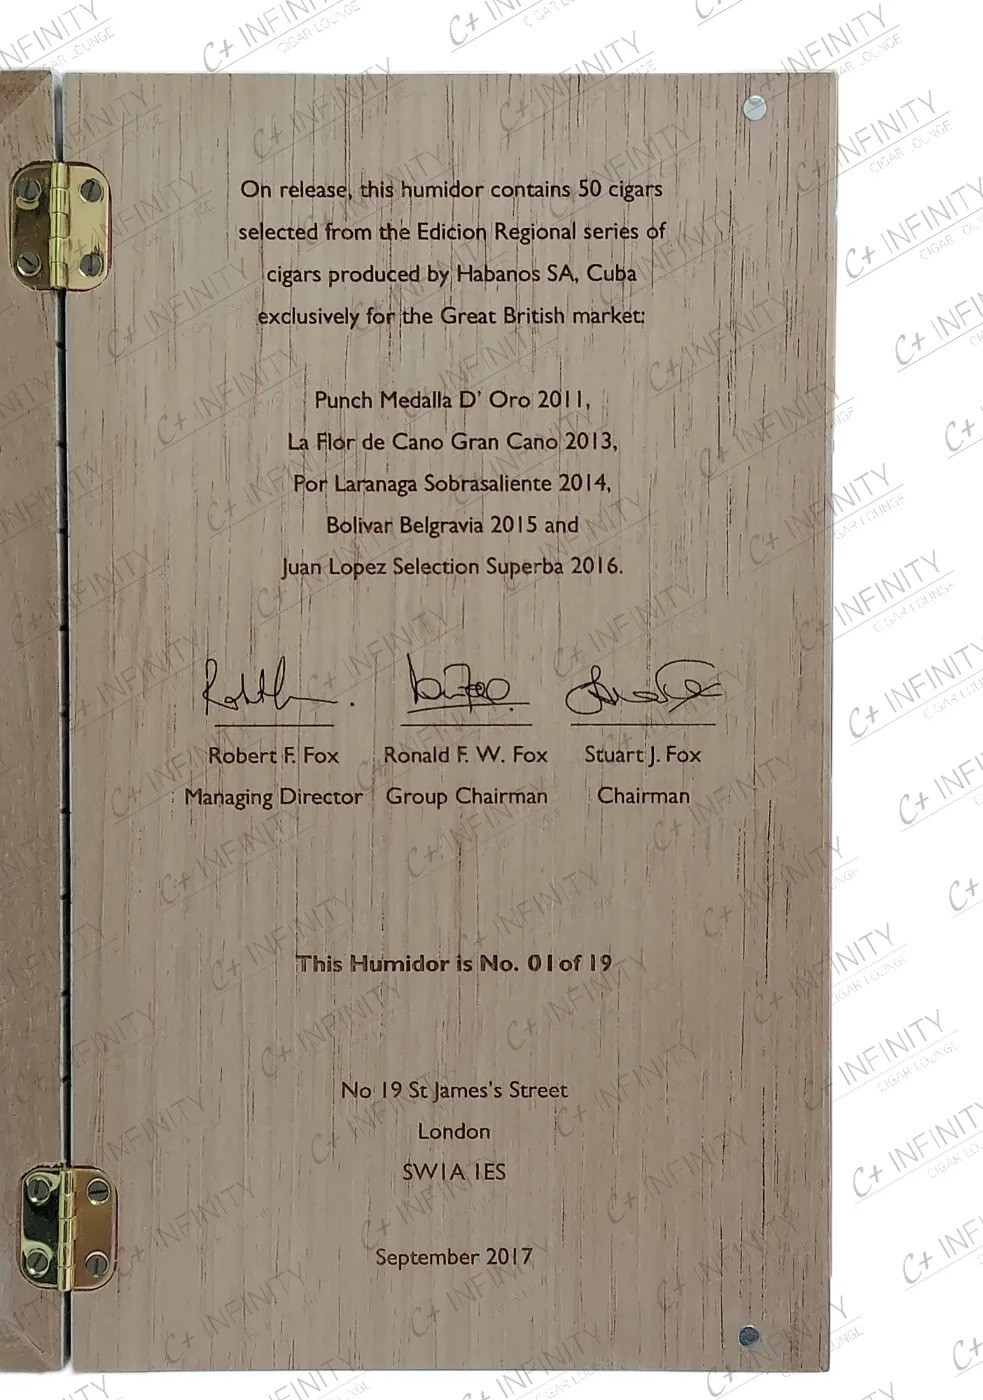 On release, this humidor contains 50 cigars
selected from the Edicion Regional series of
cigars produced by Habanos SA, Cuba
exclusively for the Great British market:
Punch Medalla D' Oro 2011,
La Flor de Cano Gran Cano 2013,
Por Laranaga Sobrasaliente 2014,
Bolivar Belgravia 2015 and
Juan Lopez Selection Superba 2016.
Robert F. Fox Ronald F. W. Fox Stuart J. Fox
Managing Director Group Chairman Chairman
This Humidor is No. 01 of 19
No 19 St James's Street
London
SW1A 1ES
September 2017
C+ INFINITY
CIGAR LOUNGE